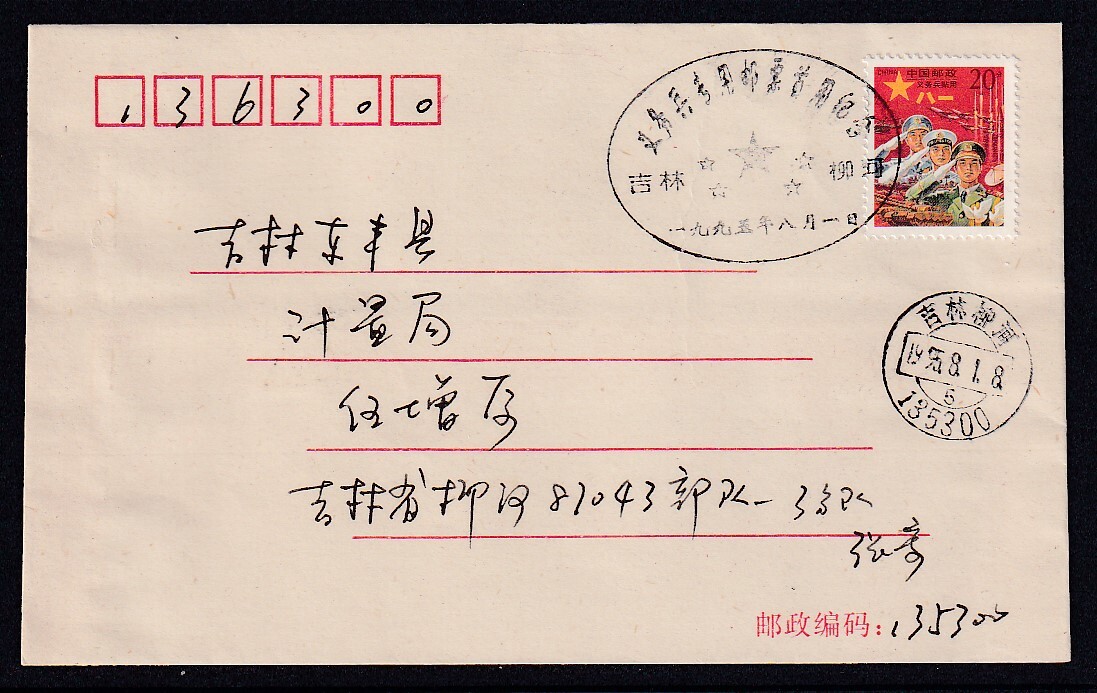 136300
义务兵专用邮票首用纪念
吉林 柳河
一九九五年八月一日
CHINA 中国邮政 20分
义务兵贴用
八一
吉林东丰县
计量局
任增厚
吉林柳河
1995.8.1.8
5
135300
吉林省柳河81043部队一分队
张
邮政编码：135300